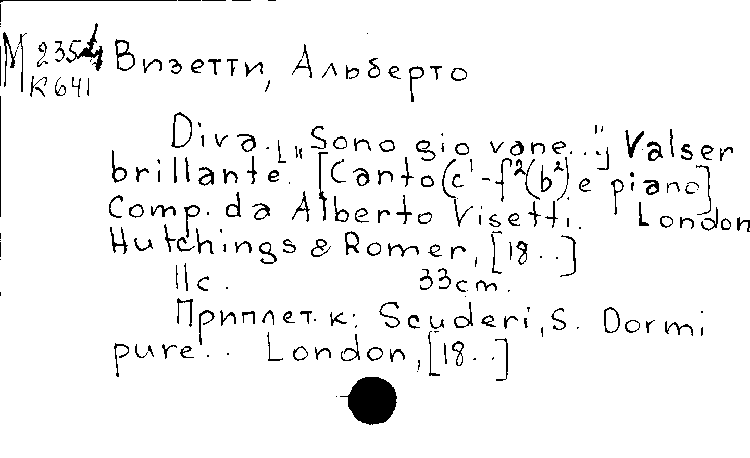 М 235/4 Визетти, Альберто
К 641
Diva. [„Sono gio vane...”] Valser
brillante. [Canto (c¹-f²(b²) e piano]
Comp. da Alberto Visetti. London
Hutchings & Romer, [18..]
11c. 33cm.
Приплет. к: Scuderi, S. Dormi
pure.. London, [18..]